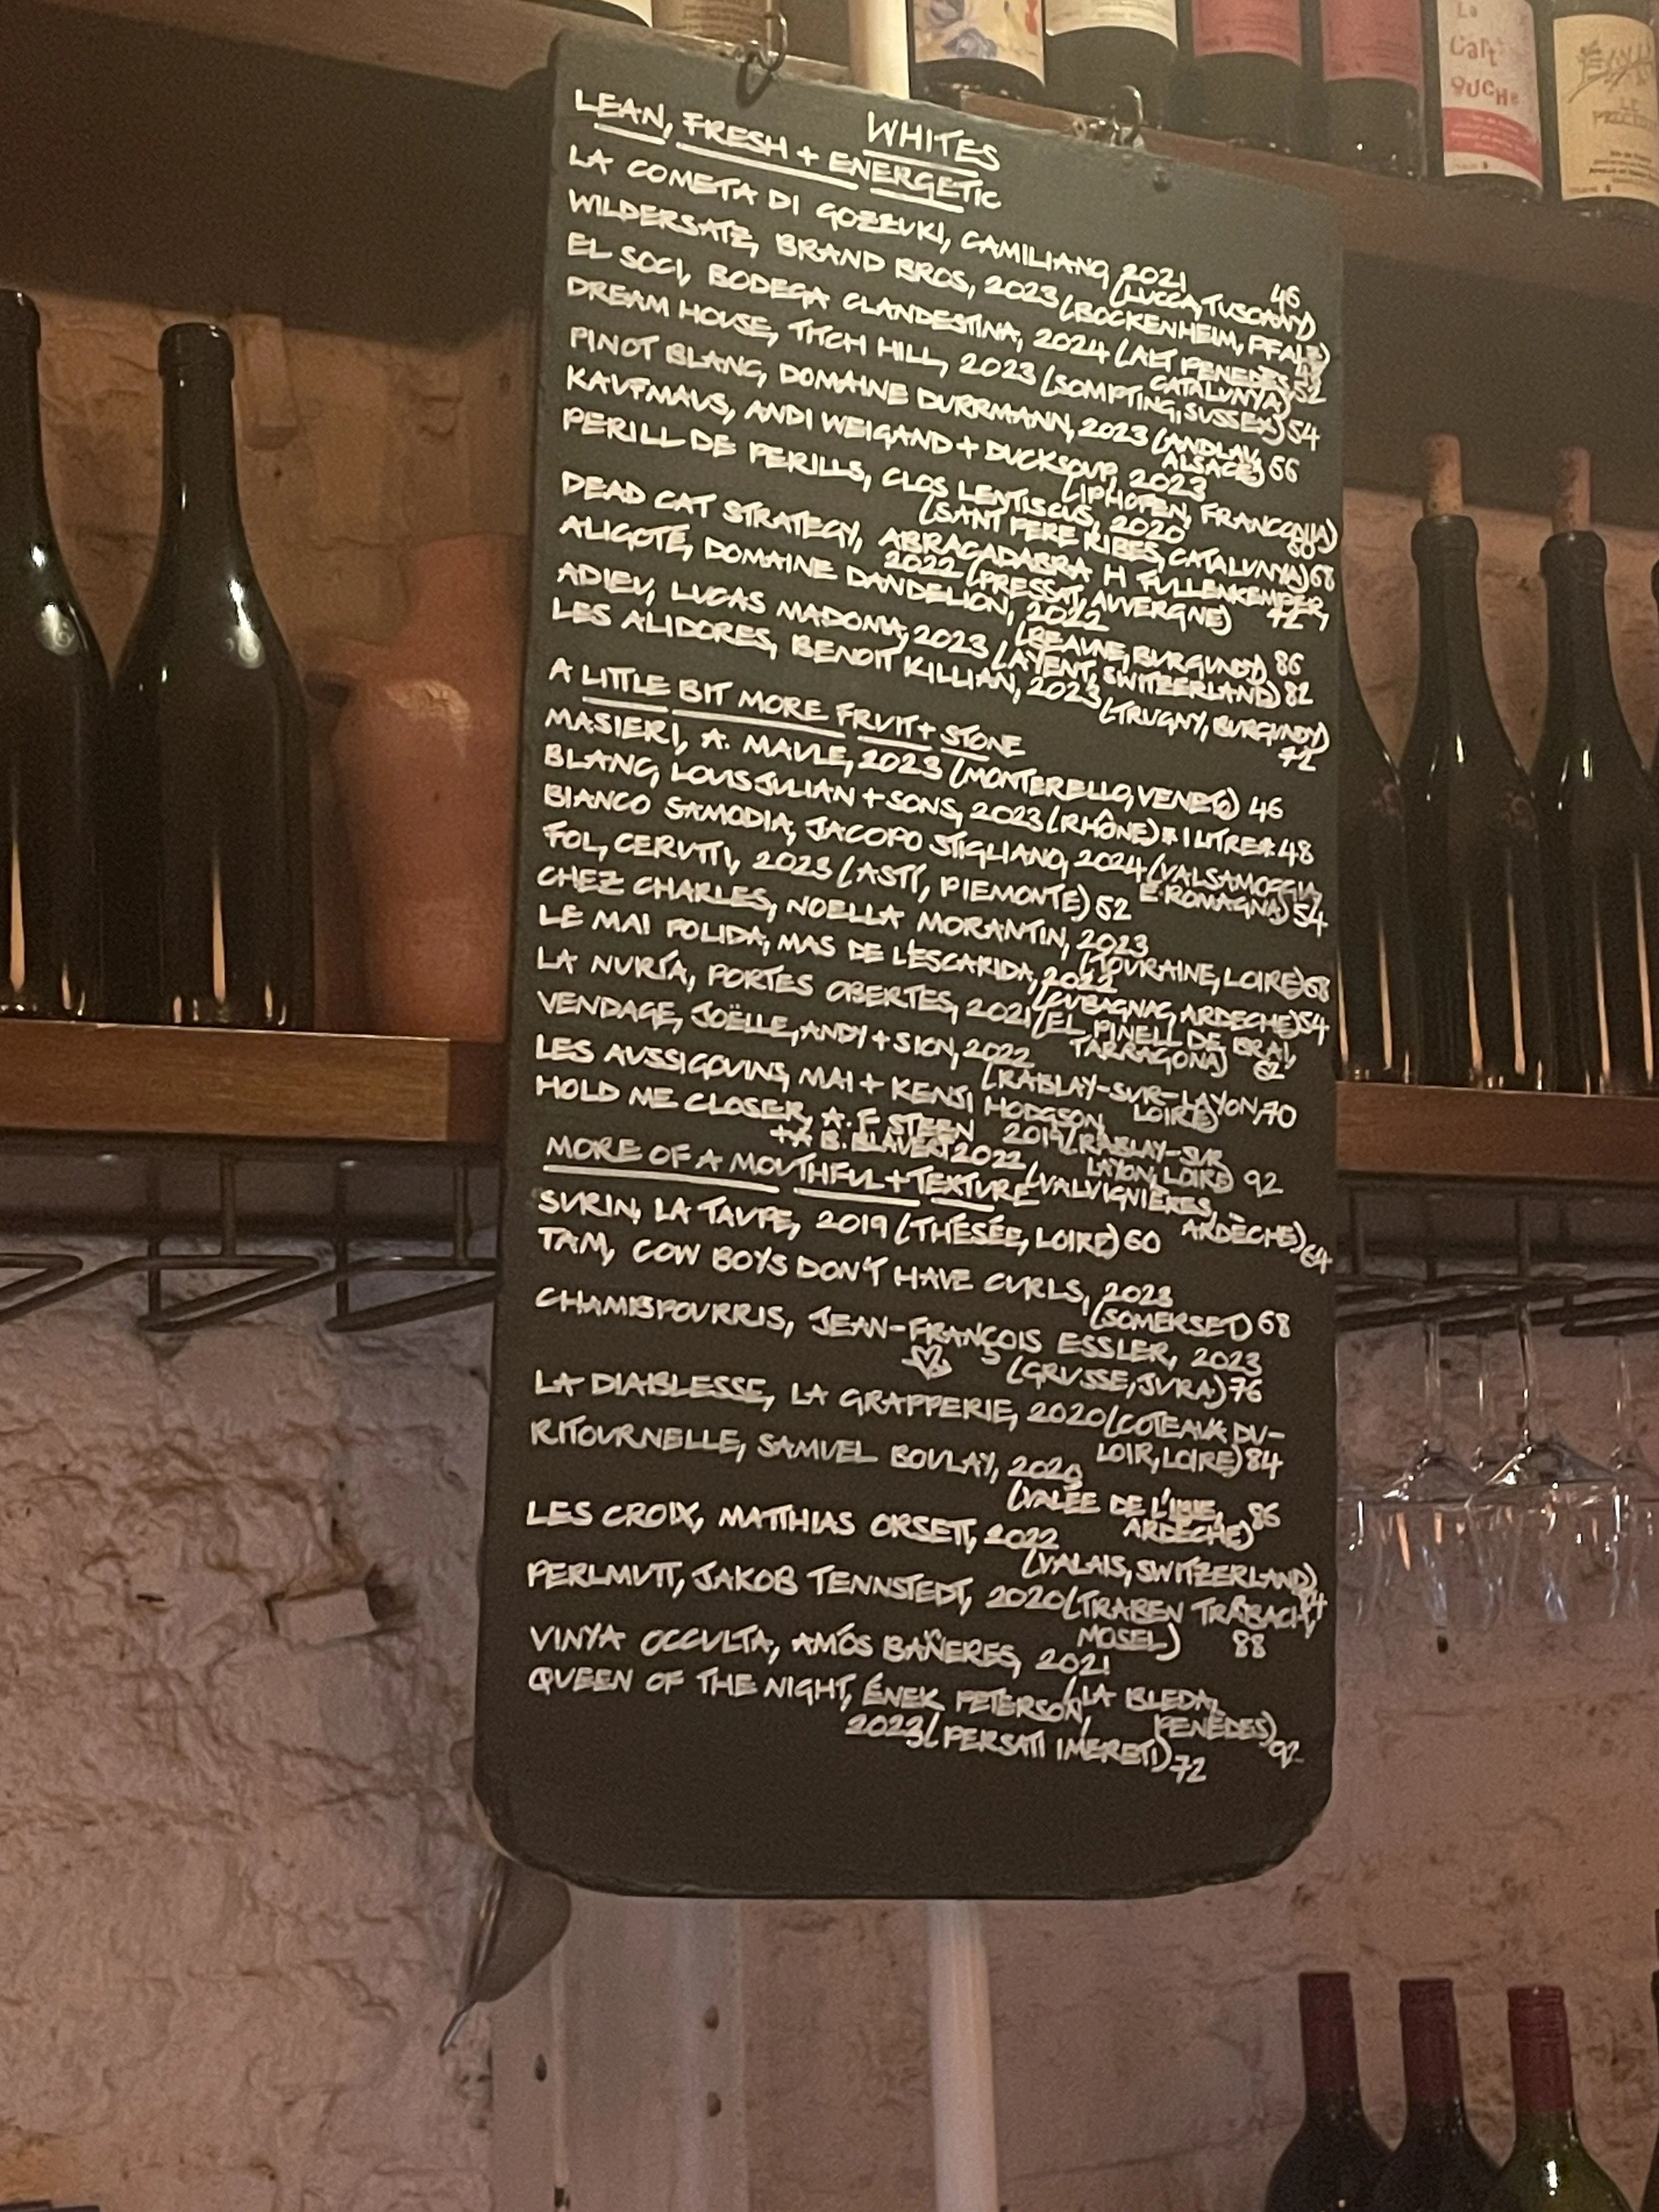 WHITES
LEAN, FRESH + ENERGETIC
LA COMETA DI GOZZUKI, CAMILIANO, 2021 46
(LUCCA, TUSCANY)
WILDERSATZ, BRAND BROS, 2023 (BOCKENHEIM, PFALZ)
EL SOCI, BODEGA CLANDESTINA, 2024 (ALT PENEDES, 52
CATALUNYA)
DREAM HOUSE, TITCH HILL, 2023 (SOMPTING, SUSSEX) 54
PINOT BLANC, DOMAINE DURRMANN, 2023 (ANDLAU,
ALSACE) 66
KAUFMAUS, ANDI WEIGAND + DUCKSOUP, 2023
(IPHOFEN, FRANCONIA)
PERILL DE PERILLS, CLOS LENTISCUS, 2020
(SANT PERE RIBES, CATALUNYA) 68
DEAD CAT STRATEGY, ABRACADABRA H FULLENKEMPER,
2022 (PRESSAT, AUVERGNE) 72
ALIGOTÉ, DOMAINE DANDELION, 2022
(BEAUNE, BURGUNDY) 86
ADIEU, LUCAS MADONIA, 2023 (AYENT, SWITZERLAND) 82
LES ALIDORES, BENOIT KILLIAN, 2023 (TRUGNY, BURGUNDY)
72
A LITTLE BIT MORE FRUIT + STONE
MASIERI, A. MAULE, 2023 (MONTERELLO, VENETO) 46
BLANC, LOUIS JULIAN + SONS, 2023 (RHÔNE) * 1 LITRE * 48
BIANCO SAMODIA, JACOPO STIGLIANO, 2024 (VALSAMOGGIA,
E-ROMAGNA) 54
FOL, CERUTTI, 2023 (ASTI, PIEMONTE) 52
CHEZ CHARLES, NOELLA MORANTIN, 2023
(TOURAINE, LOIRE) 68
LE MAI POLIDA, MAS DE L'ESCARIDA, 2022
(LUBAGNAC, ARDECHE) 54
LA NURÍA, PORTES OBERTES, 2021 (EL PINELL DE BRAI,
TARRAGONA) 62
VENDAGE, JOËLLE, ANDY + SION, 2022
(RABLAY-SUR-LAYON, 70
LOIRE)
LES AUSSIGOUINS, MAI + KENJI HODGSON,
2019 (RABLAY-SUR
LAYON, LOIRE) 92
HOLD ME CLOSER, A. F STEEN
+ A B. BLAVERT 2022 (VALVIGNIÈRES,
ARDÈCHE) 64
MORE OF A MOUTHFUL + TEXTURE
SURIN, LA TAUPE, 2019 (THÉSÉE, LOIRE) 60
TAM, COW BOYS DON'T HAVE CURLS, 2023
(SOMERSET) 68
CHAMBPOURRIS, JEAN-FRANÇOIS ESSLER, 2023
(GRUSSE, JURA) 76
LA DIABLESSE, LA GRAPPERIE, 2020 (COTEAUX DU-
LOIR, LOIRE) 84
RITOURNELLE, SAMUEL BOULAY, 2020
(VALÉE DE L'IBIE, 86
ARDECHE)
LES CROIX, MATTHIAS ORSETT, 2022
(VALAIS, SWITZERLAND)
PERLMUTT, JAKOB TENNSTEDT, 2020 (TRABEN TRABACH,
MOSEL) 88
VINYA OCCULTA, AMÓS BAÑERES, 2021
(LA BLEDA,
PENEDES) 92
QUEEN OF THE NIGHT, ÉNEK PETERSON,
2023 (PERSATI IMERETI) 72
La
Cart
OUCHE
LE